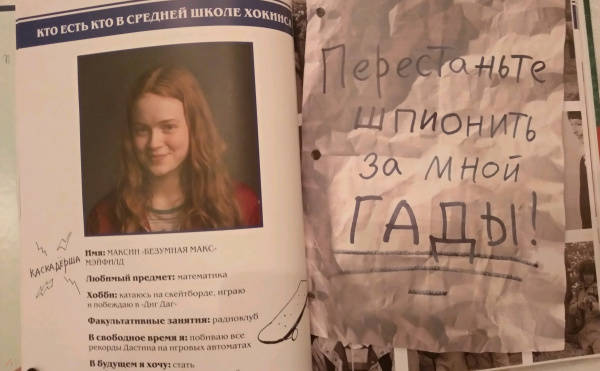 КТО ЕСТЬ КТО В СРЕДНЕЙ ШКОЛЕ ХОКИНСА
КАСКАДЁРША
Имя: МАКСИН «БЕЗУМНАЯ МАКС»
МЭЙФИЛД
Любимый предмет: математика
Хобби: катаюсь на скейтборде, играю
и побеждаю в «Диг Даг»
Факультативные занятия: радиоклуб
В свободное время я: побиваю все
рекорды Дастина на игровых автоматах
В будущем я хочу: стать
Перестаньте
шпионить
за мной
ГАДЫ!